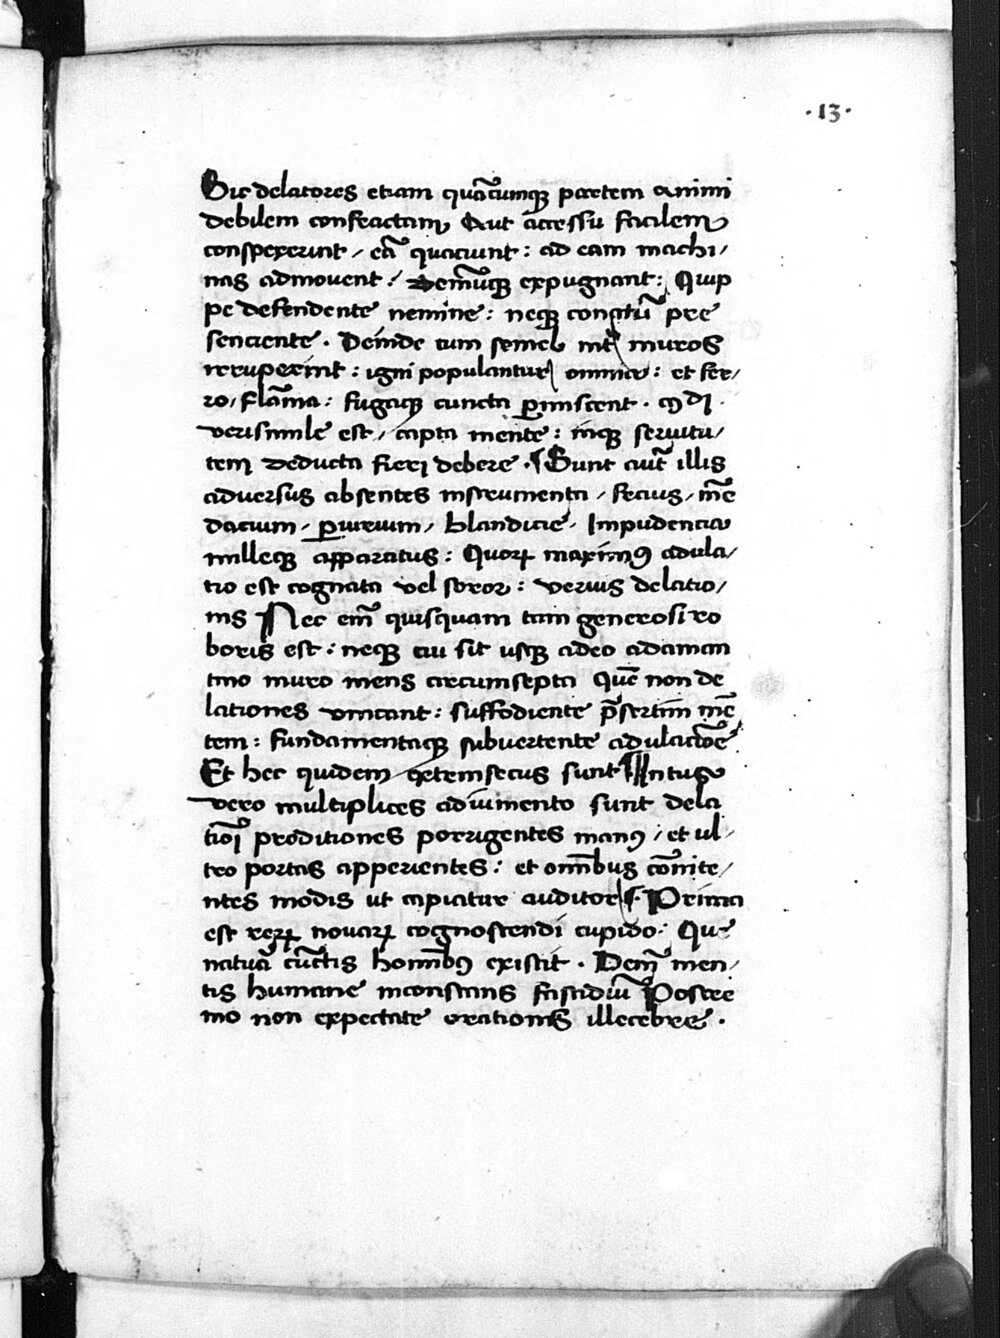 ·13·
Sic delatores etiam quãcumqꝫ partem animi
debilem confractam Aut accessu facilem
conspexerint / eã quatiunt : ad eam machi/
nas admouent : Demũqꝫ expugnant : Quip
pe defendente nemine : neqꝫ conatũ pre
senciente . Deinde cum semel int muros
irruperint : igni populantur omnia : et fer/
ro / flãma : fugaqꝫ cuncta ꝑmiscent .
verisimile est / capta mente : inqꝫ seruitu/
tem deducta fieri debere . ¶ Sunt aut̃ illis
aduersus absentes instrumenta / fucus / mẽ
dacium / ꝑiurium / blandicie / Impudencia
milleqꝫ apparatus : Quoꝝ maximꝰ adula/
tio est cognata vel soror : verius delatio/
nis Nec em̃ quisquam tam generosi ro
boris est : neqꝫ cui sit usqꝫ adeo adaman
tino muro mens circumsepta Quẽ non de
lationes vincant : suffodiente p̃sertim mẽ
tem : fundamentaqꝫ subuertente adulatiõe
Et hec quidem extrinsecus sunt Intus
vero multiplices adiumento sunt dela
tiõi proditiones porrigentes manꝰ : et ul/
tro portas apperientes : et om̃ibus cõnite/
ntes modis ut capiatur auditor ¶ Prima
est reꝝ nouaꝝ cognoscendi cupido : Que
naturã cũctis hom̃ibꝰ existit . Dem̃ men/
tis humane inconstans fastidiũ Postre
mo non expectate orationis illecebre .